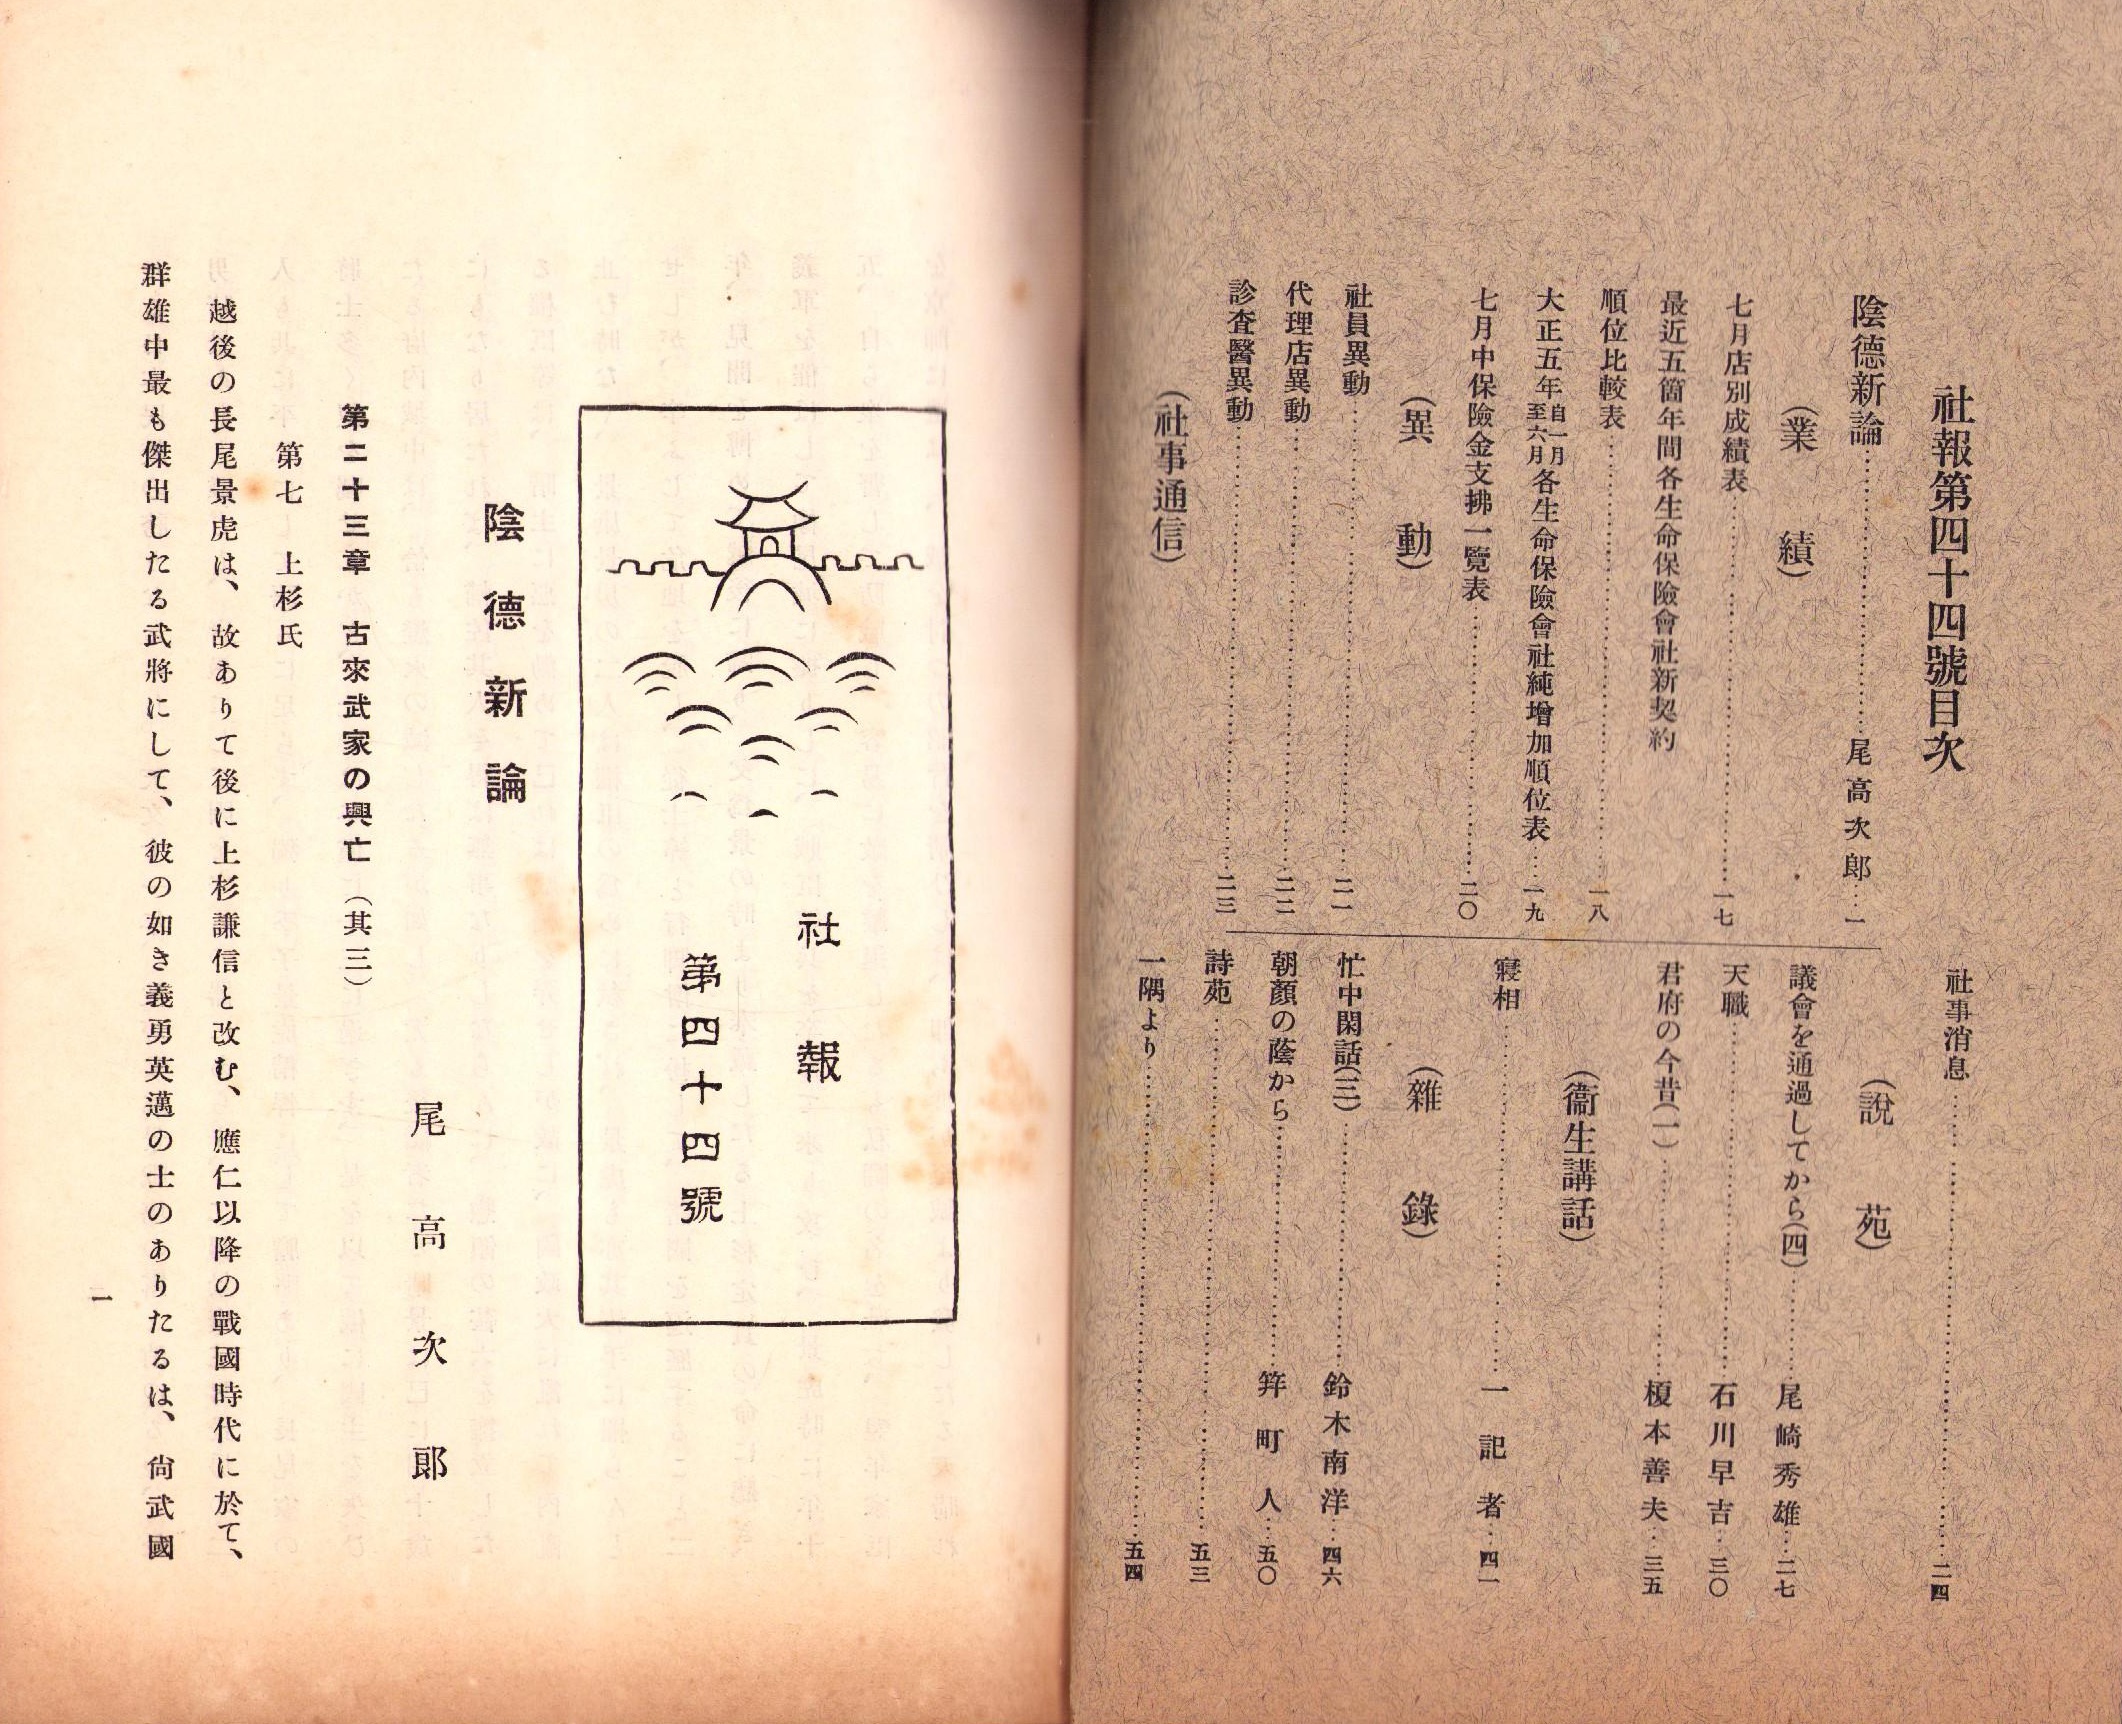 社報第四十四號目次
陰德新論……尾高次郎…一
(業績)
七月店別成績表……一七
最近五箇年間各生命保險會社新契約
順位比較表……一八
大正五年自一月至六月各生命保險會社純增加順位表……一九
七月中保險金支拂一覽表……二〇
(異動)
社員異動……二一
代理店異動……二二
診査醫異動……二三
(社事通信)
社事消息……二四
(說苑)
議會を通過してから(四)……尾崎秀雄…二七
天職……石川早吉…三〇
君府の今昔(一)……榎本善夫…三五
(衞生講話)
寢相……一記者…四一
(雜錄)
忙中閑話(三)……鈴木南洋…四六
朝顏の蔭から……笄町人…五〇
詩苑……五三
一隅より……五四
社報
第四十四號
陰德新論
尾高次郎
第二十三章 古來武家の興亡(其三)
第七 上杉氏
越後の長尾景虎は、故ありて後に上杉謙信と改む、應仁以降の戰國時代に於て、
群雄中最も傑出したる武將にして、彼の如き義勇英邁の士のありたるは、尙武國
一